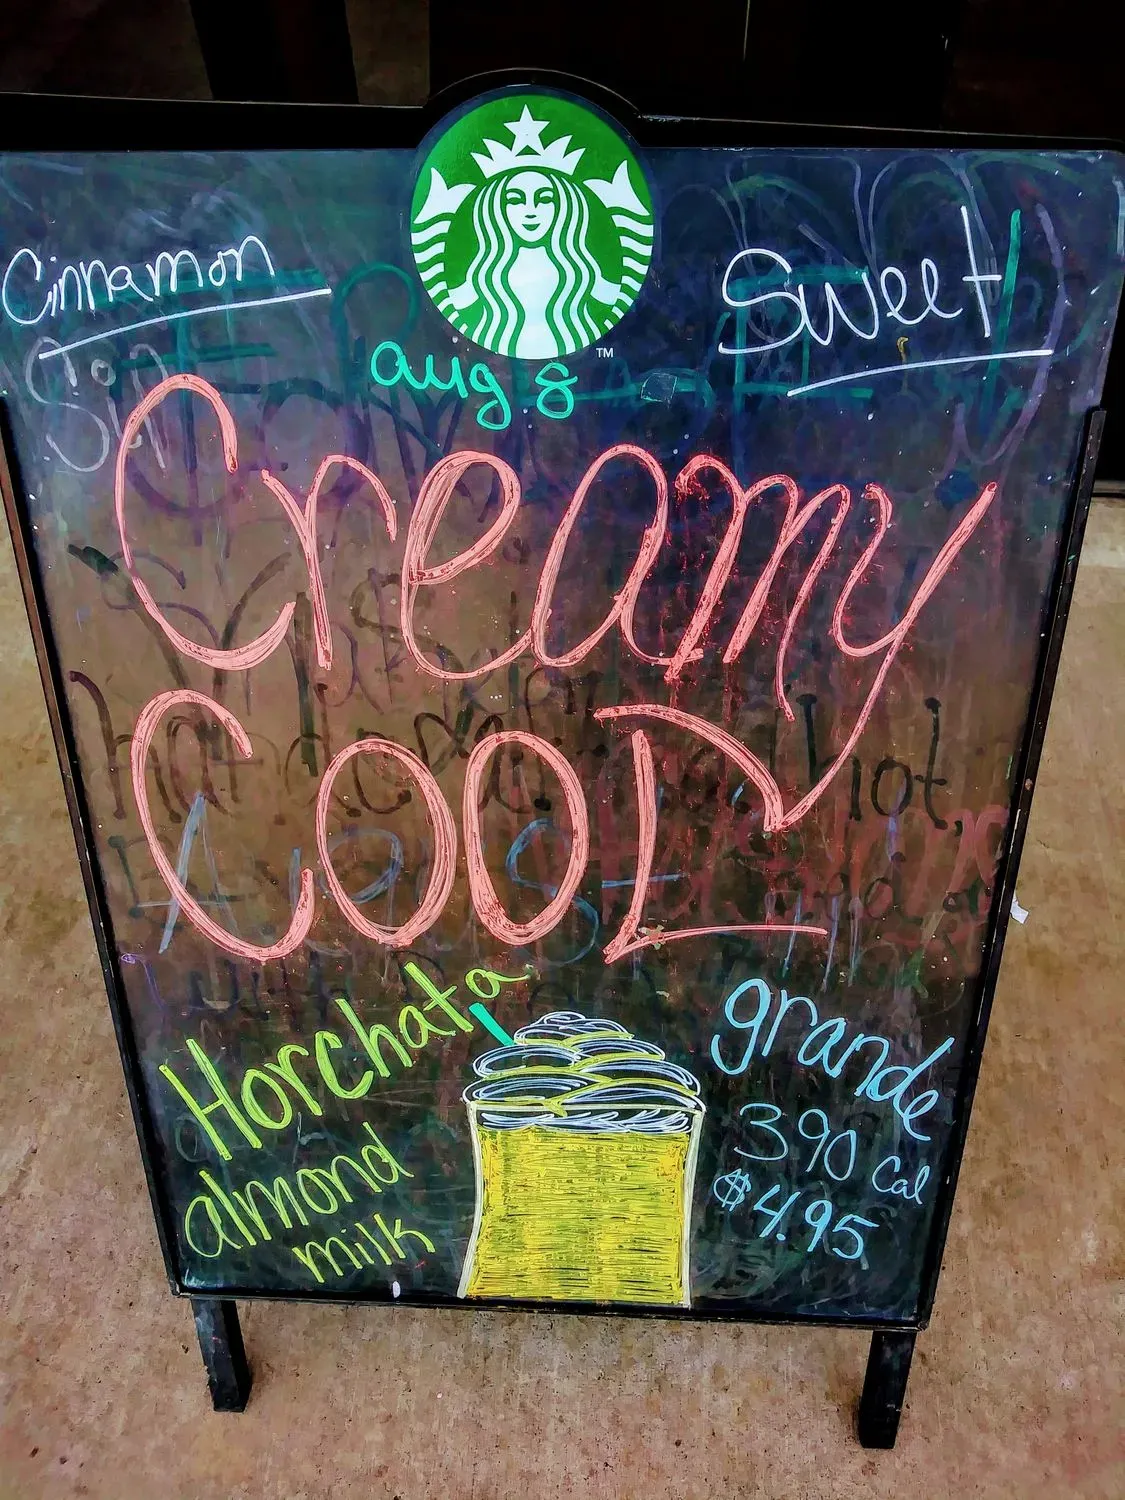 Cinnamon
Sweet
TM
aug 8
Creamy
COOL
Horchata
almond
milk
grande
390 Cal
$4.95
hot